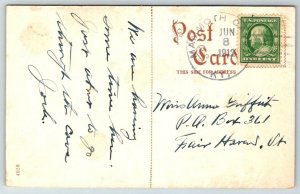 We are having
some time here.
Just about to go
through the cave
Jack.
Post
Card
THIS SIDE FOR ADDRESS
MAMMOTH
JUN
8
1912
KY.
U.S. POSTAGE
ONE CENT
Miss Anna Griffith
P.O. Box 361
Fair Haven, Vt